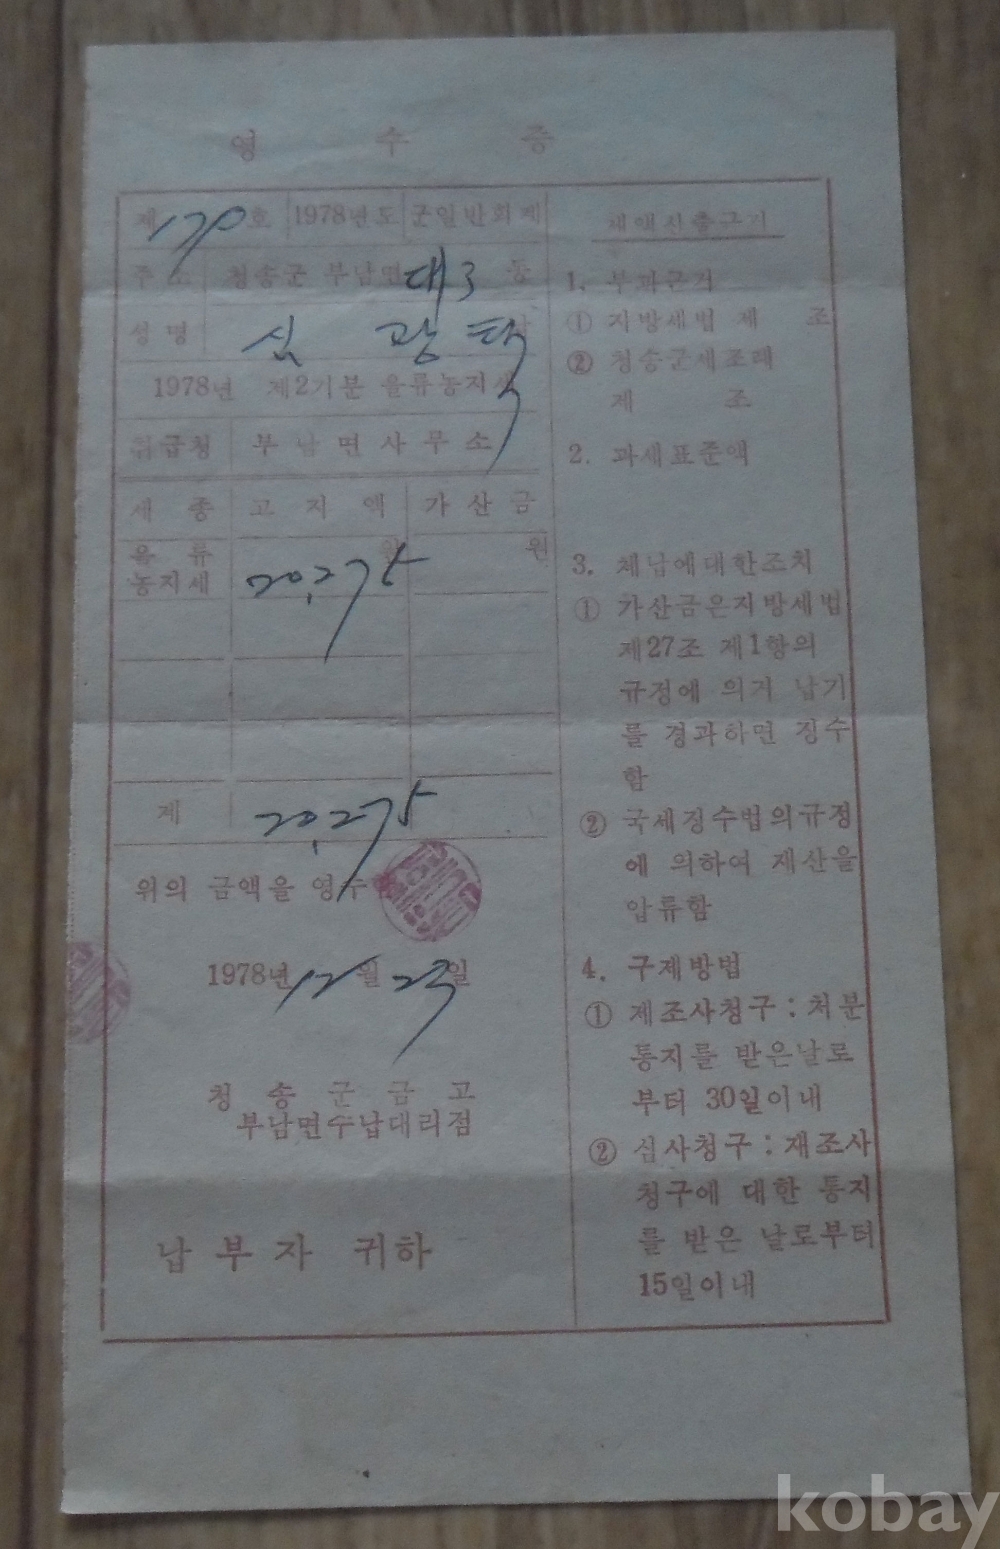 영 수 증
제 170 호 1978년도 군일반회계
주소 청송군 부남면 대3 동
성명 심 광 택
1978년 제2기분 을류농지세
취급청 부남면사무소
세 종 고 지 액 가 산 금
을 류 원 원
농지세 20,275
계 20,275
위의 금액을 영수
1978년 12월 23일
청 송 군 금 고
부남면수납대리점
납 부 자 귀하
세액산출근거
1. 부과근거
① 지방세법 제 조
② 청송군세조례
제 조
2. 과세표준액
3. 체납에대한조치
① 가산금은지방세법
제27조 제1항의
규정에 의거 납기
를 경과하면 징수
함
② 국세징수법의규정
에 의하여 재산을
압류함
4. 구제방법
① 재조사청구 : 처분
통지를 받은날로
부터 30일이내
② 심사청구 : 재조사
청구에 대한 통지
를 받은 날로부터
15일이내
kobay